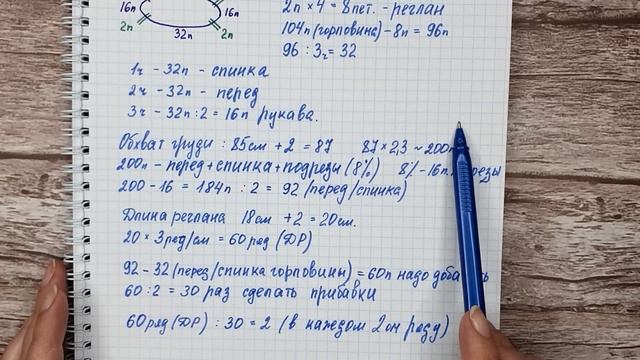 2п × 4 = 8 пет. - реглан
16п 16п
104п (горловина) - 8п = 96п
2п 32п 2п
96 : 3ч = 32
1ч - 32п - спинка
2ч - 32п - перед
3ч - 32п : 2 = 16п рукава.
Обхват груди : 85см + 2 = 87 87 × 2,3 ~ 200п
200п - перед + спинка + подрезы (8%) 8% - 16п.
200 - 16 = 184п : 2 = 92 (перед/спинка)
Длина реглана 18см + 2 = 20см.
20 × 3ряд/см = 60 ряд (ДР)
92 - 32 (перед/спинка горловины) = 60п надо
60 : 2 = 30 раз сделать прибавки
60 ряд (ДР) : 30 = 2 (в каждом 2ом ряду)